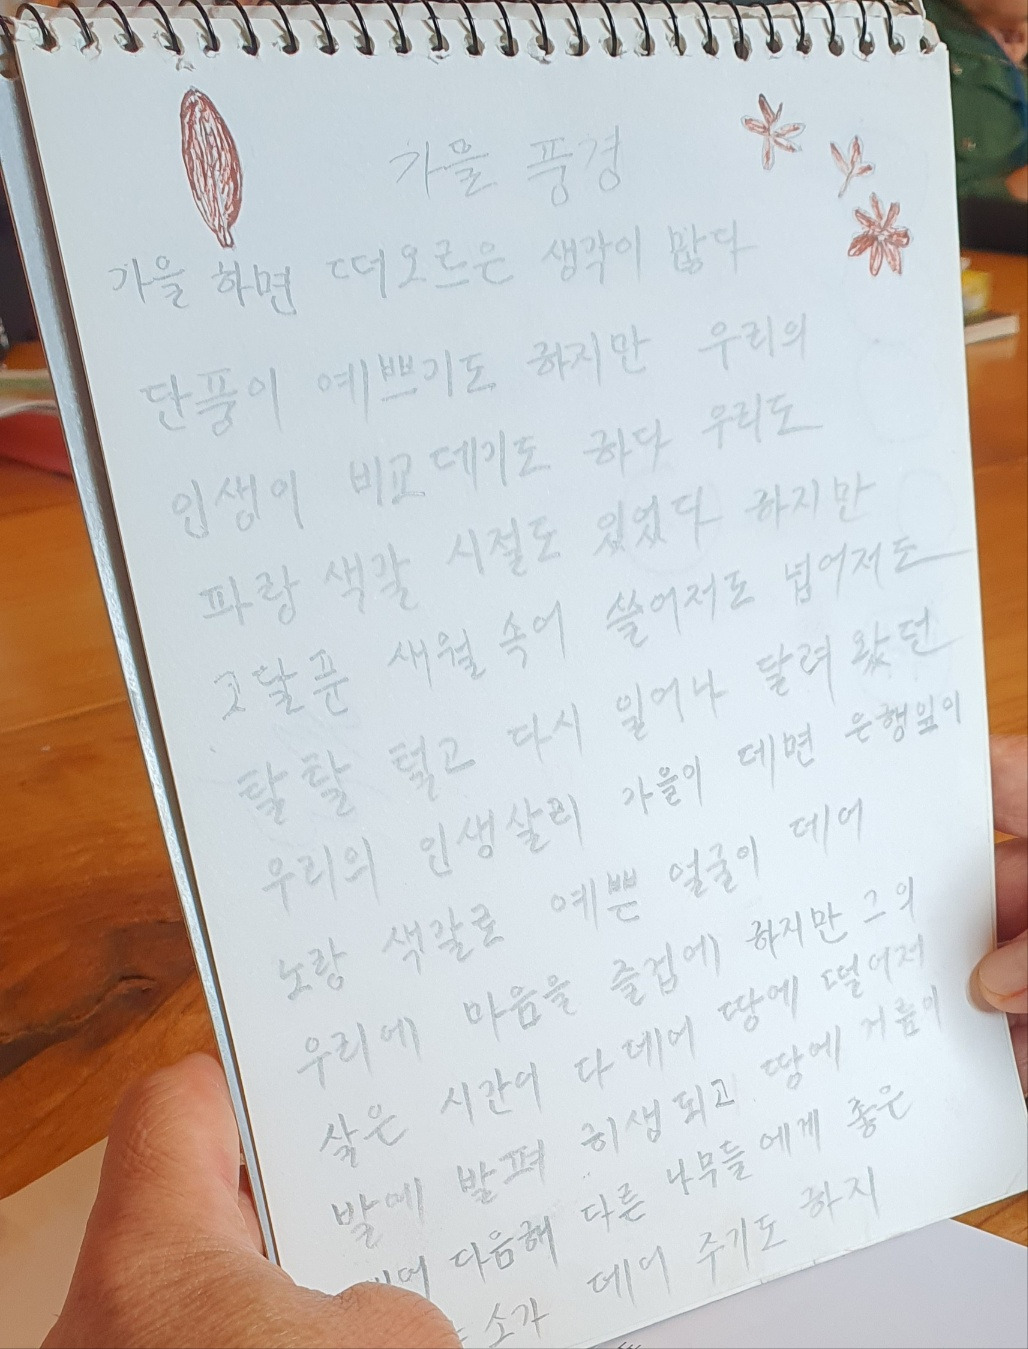 가을 풍경
가을 하면 떠오르은 생각이 많다
단풍이 예쁘기도 하지만 우리의
인생이 비교데기도 하다 우리도
파랑 색갈 시절도 있었다 하지만
고달픈 새월 속에 쓸어저도 넙어저도
탈탈 털고 다시 일어나 달려왔던
우리의 인생살리 가을이 데면 은행잎이
노랑 색갈로 예쁜 얼굴이 데어
우리에 마음을 즐겁에 하지만 그의
삶은 시간이 다 데어 땅에 떨어저
발에 발펴 히생되고 땅에 거름이
다음해 다른 나무들에게 좋은
소가 데어 주기도 하지